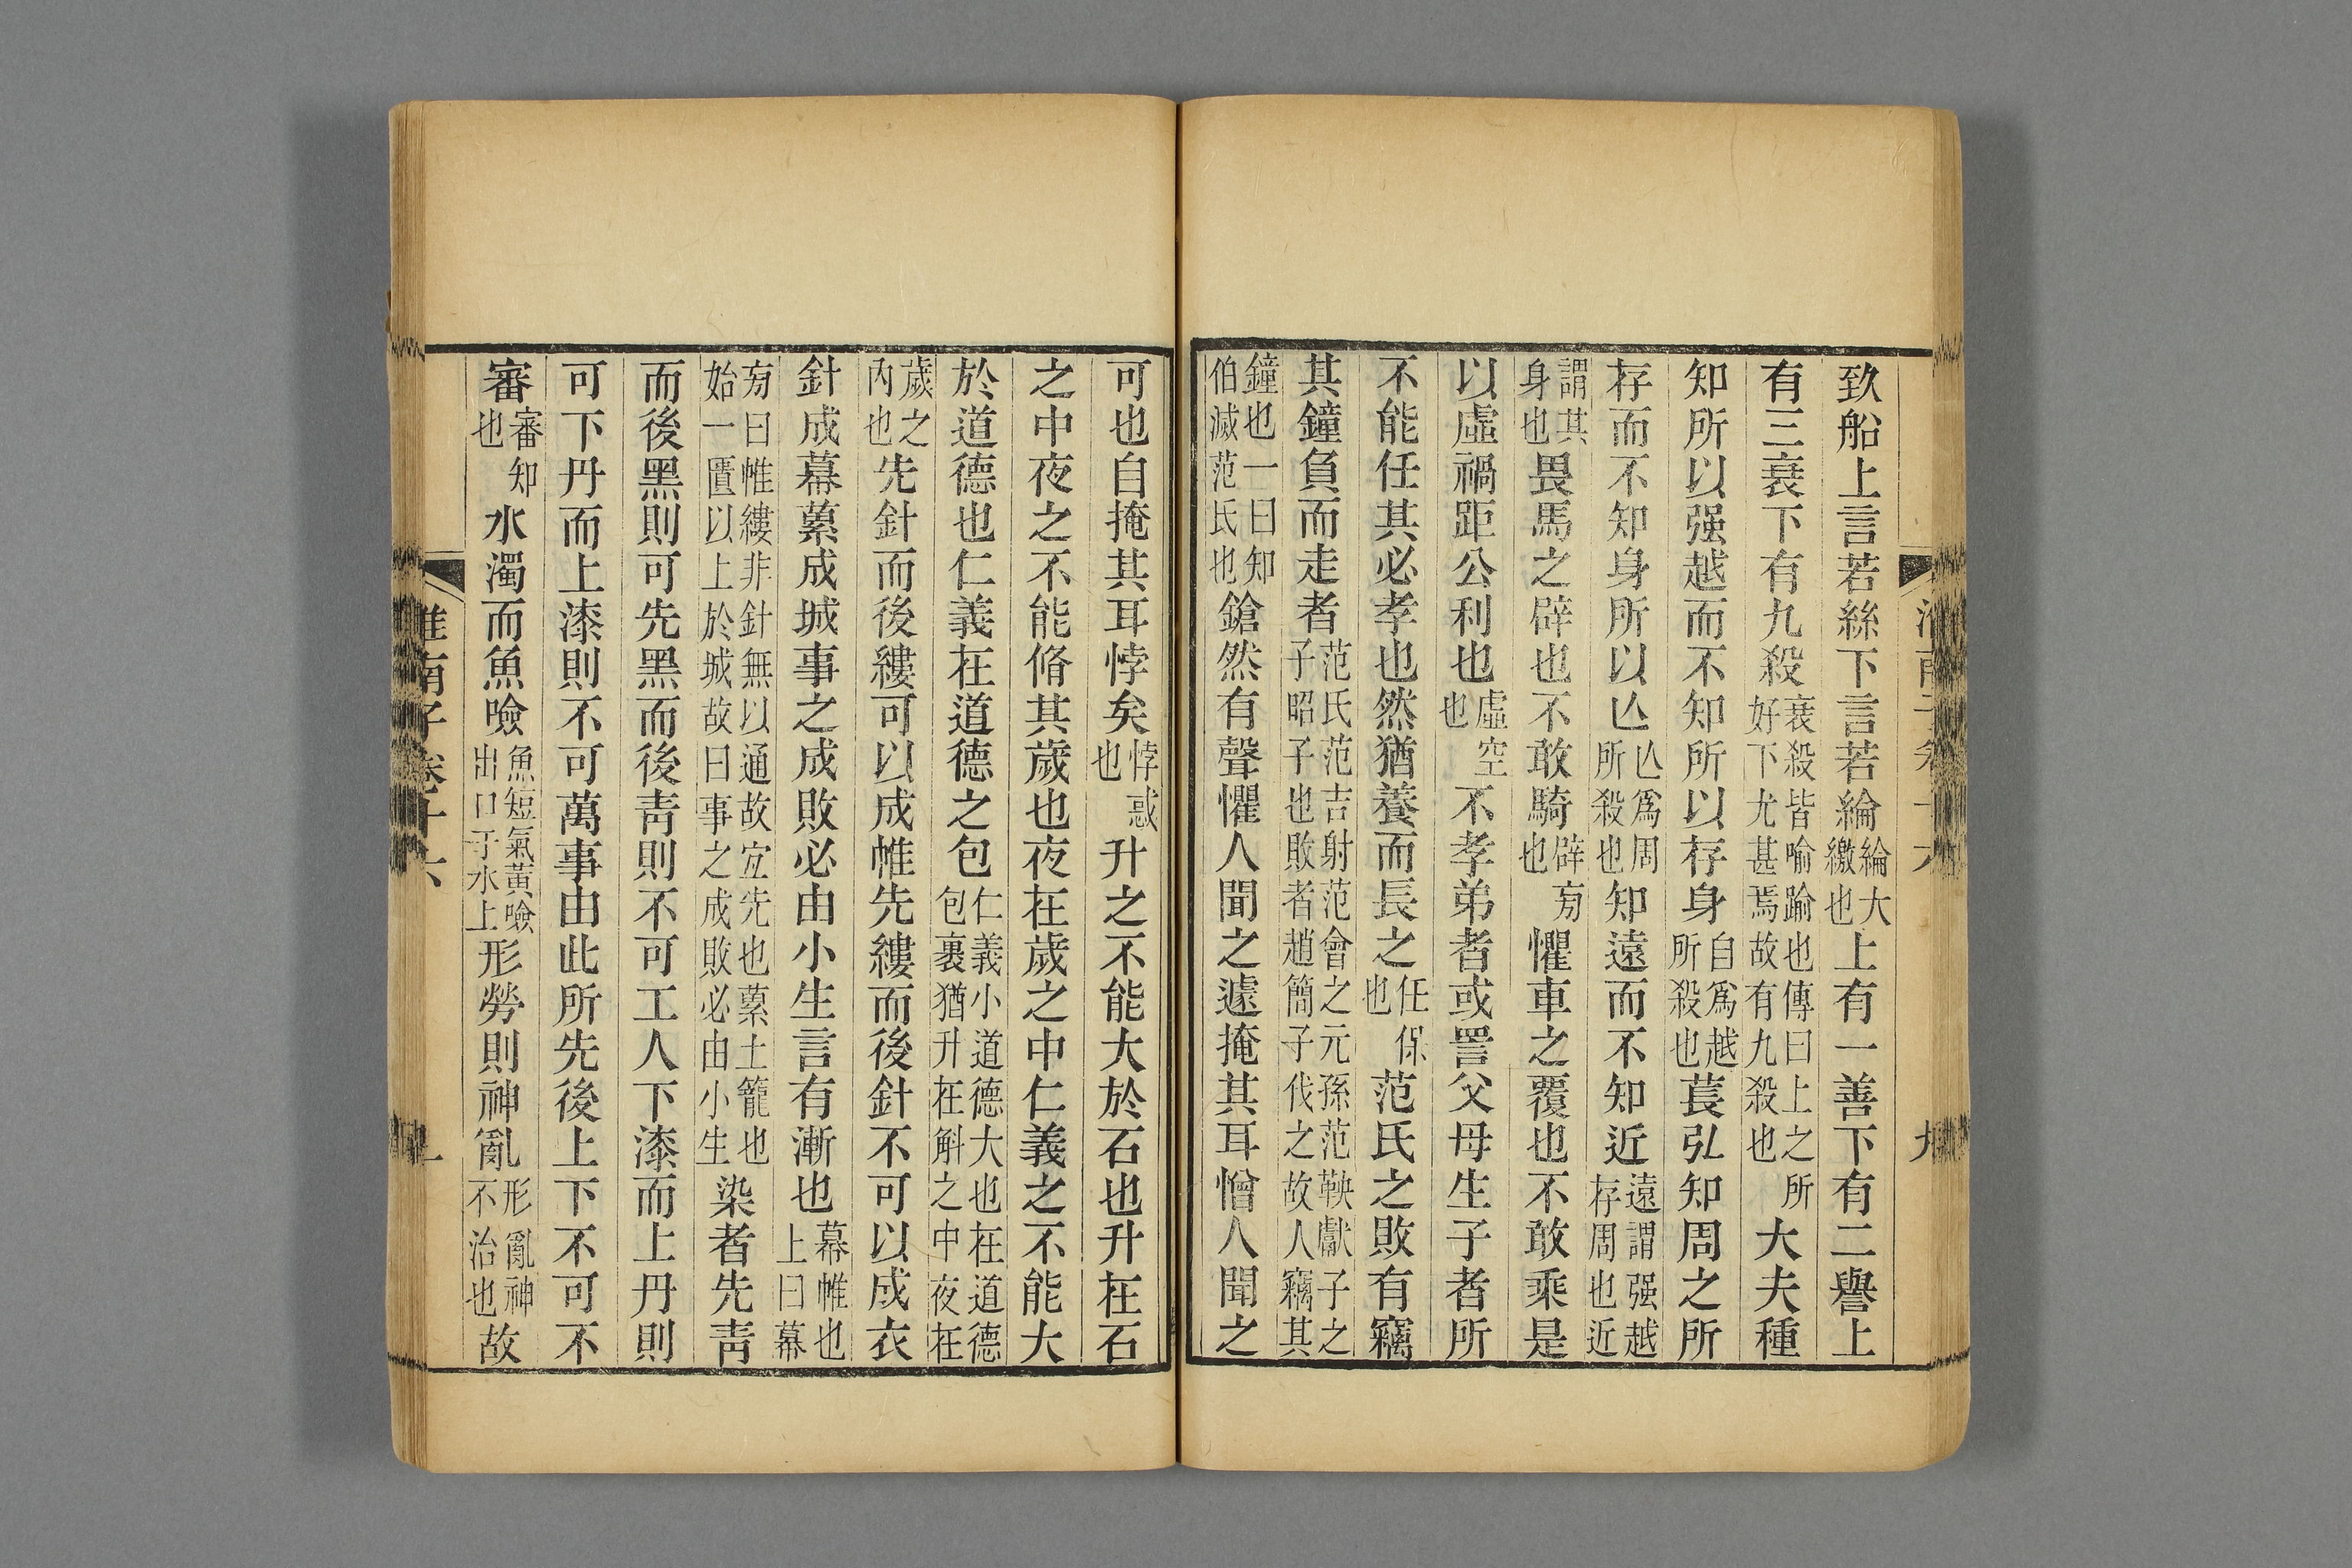 致船上言若絲下言若綸綸大繳也上有一善下有二譽上
有三衰下有九殺衰殺皆喻踰也傳曰上之所好下尤甚焉故有九殺也大夫種
知所以强越而不知所以存身自爲越所殺也萇弘知周之所
存而不知身所以亾亾爲周所殺也知遠而不知近遠謂强越存周也近
謂其身也畏馬之辟也不敢騎辟㫄也懼車之覆也不敢乘是
以虛禍距公利也虛空也不孝弟者或詈父母生子者所
不能任其必孝也然猶養而長之任保也范氏之敗有竊
其鐘負而走者范氏范吉射范會之元孫范鞅獻子之子昭子也敗者趙簡子伐之故人竊其
鐘也一曰知伯滅范氏也鎗然有聲懼人聞之遽掩其耳憎人聞之
可也自掩其耳悖矣悖惑也升之不能大於石也升在石
之中夜之不能脩其歲也夜在歲之中仁義之不能大
於道德也仁義在道德之包仁義小道德大也在道德包裹猶升在斛之中夜在
歲之內也先針而後縷可以成帷先縷而後針不可以成衣
針成幕蔂成城事之成敗必由小生言有漸也幕帷也上曰幕
㫄曰帷縷非針無以通故宐先也蔂土籠也始一匱以上於城故曰事之成敗必由小生染者先靑
而後黑則可先黑而後靑則不可工人下漆而上丹則
可下丹而上漆則不可萬事由此所先後上下不可不
審審知也水濁而魚噞魚短氣黃噞出口于水上形勞則神亂形亂神不治也故
淮南子卷十六